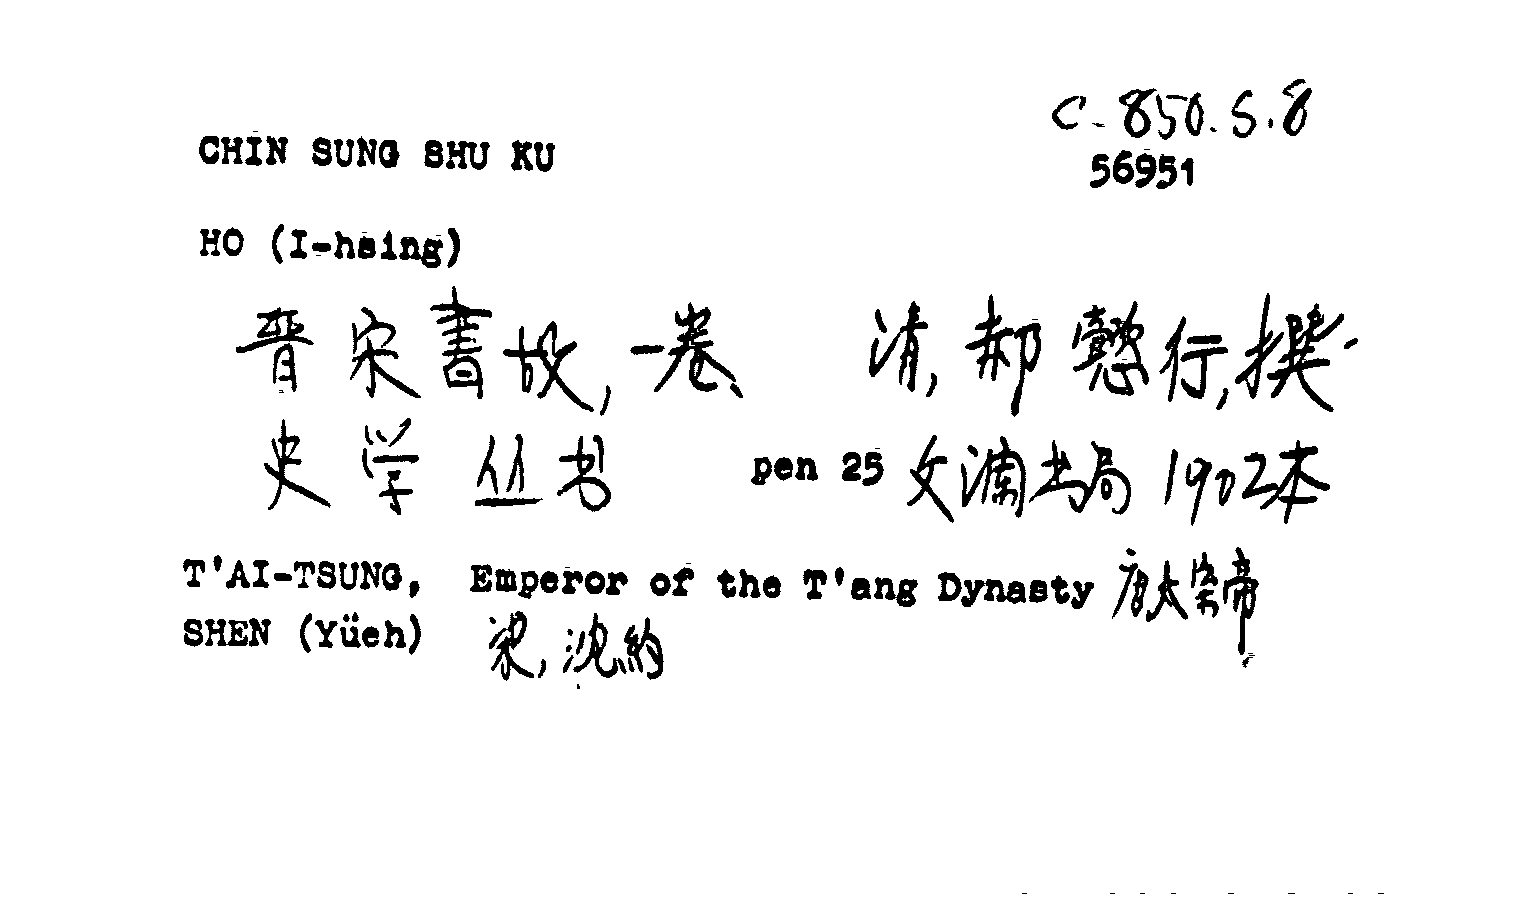 C-850.S.8
CHIN SUNG SHU KU
56951
HO (I-hsing)
晋宋書故,一卷、 清,郝懿行,撰.
史学丛书 pen 25 文瀾书局 1902本
T'AI-TSUNG, Emperor of the T'ang Dynasty 唐太宗帝
SHEN (Yüeh) 梁,沈約